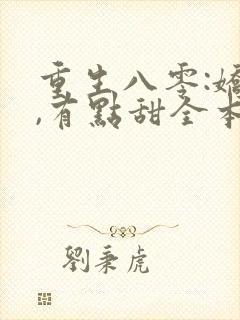 重生八零:嬌
,有點甜全本
劉秉虎